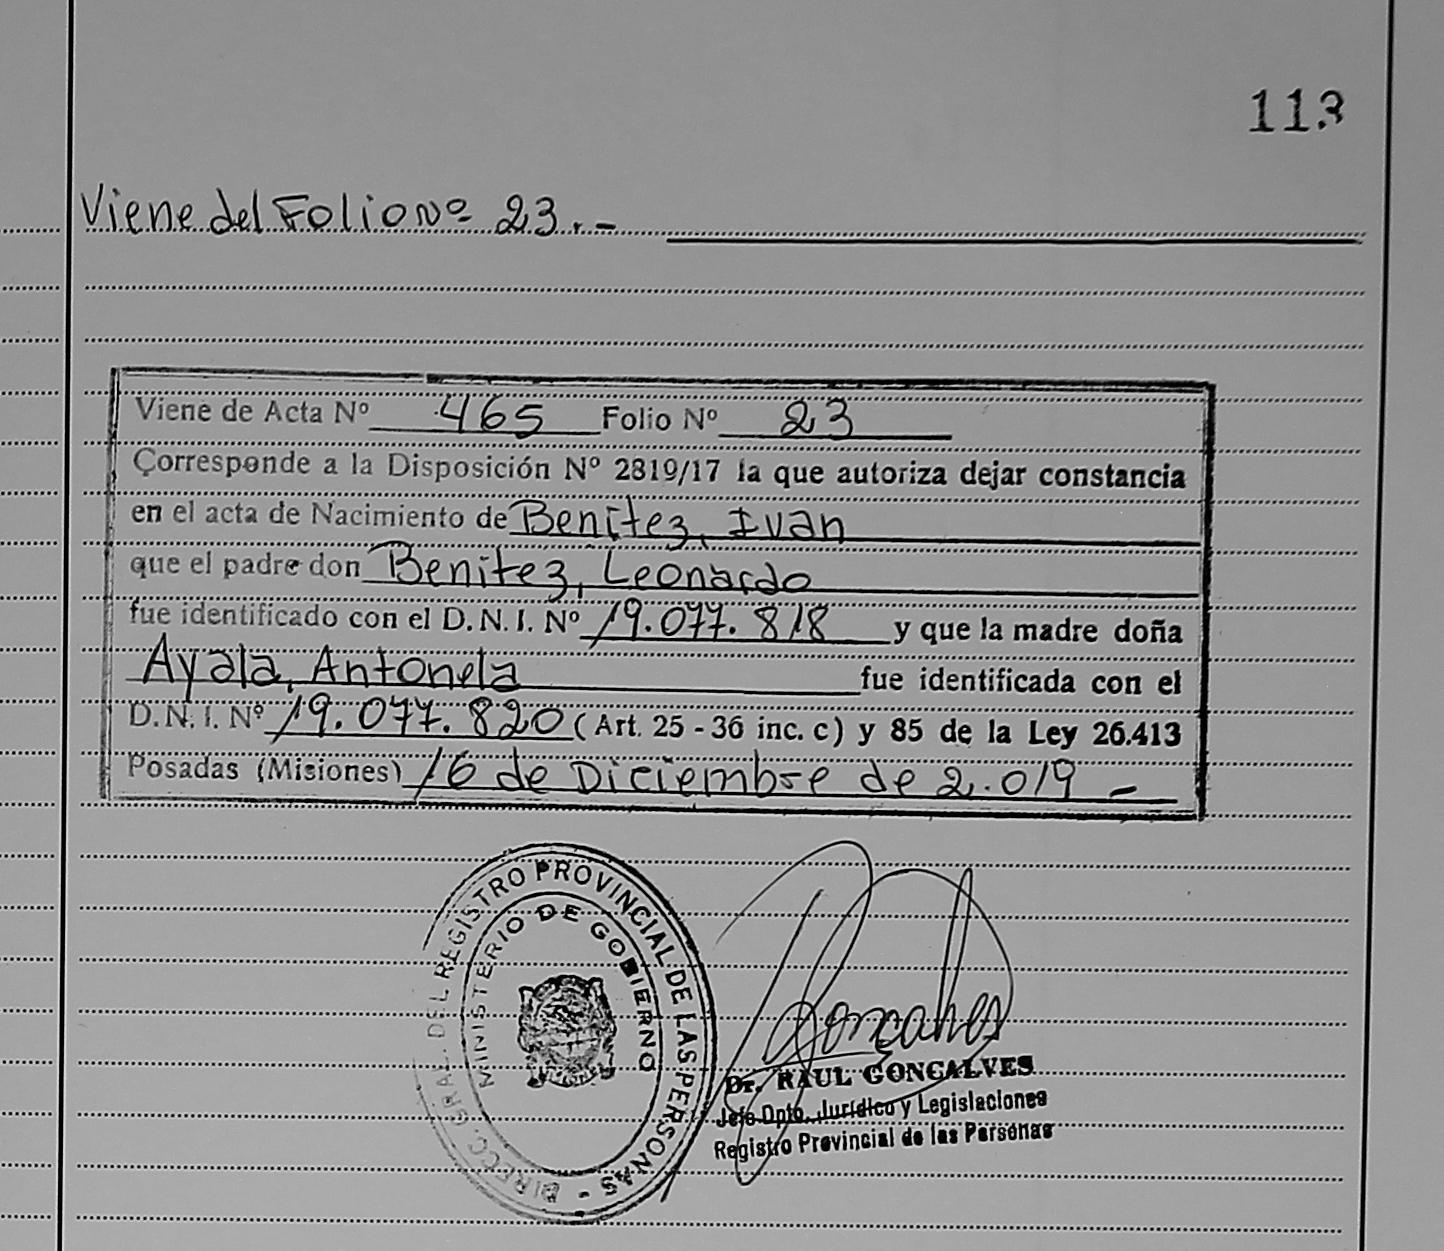 113
Viene del Folio Nº 23.-
Viene de Acta Nº 465 Folio Nº 23
Corresponde a la Disposición Nº 2819/17 la que autoriza dejar constancia
en el acta de Nacimiento de Benítez, Ivan
que el padre don Benítez, Leonardo
fue identificado con el D.N.I. Nº 19.077.818 y que la madre doña
Ayala, Antonela fue identificada con el
D.N.I. Nº 19.077.820 (Art. 25 - 36 inc. c) y 85 de la Ley 26.413
Posadas (Misiones) 16 de Diciembre de 2.019 -
DIRECC. GRAL. DEL REGISTRO PROVINCIAL DE LAS PERSONAS -
MINISTERIO DE GOBIERNO
Goncalves
Dr. RAUL GONCALVES
Jefe Dpto. Jurídico y Legislaciones
Registro Provincial de las Personas